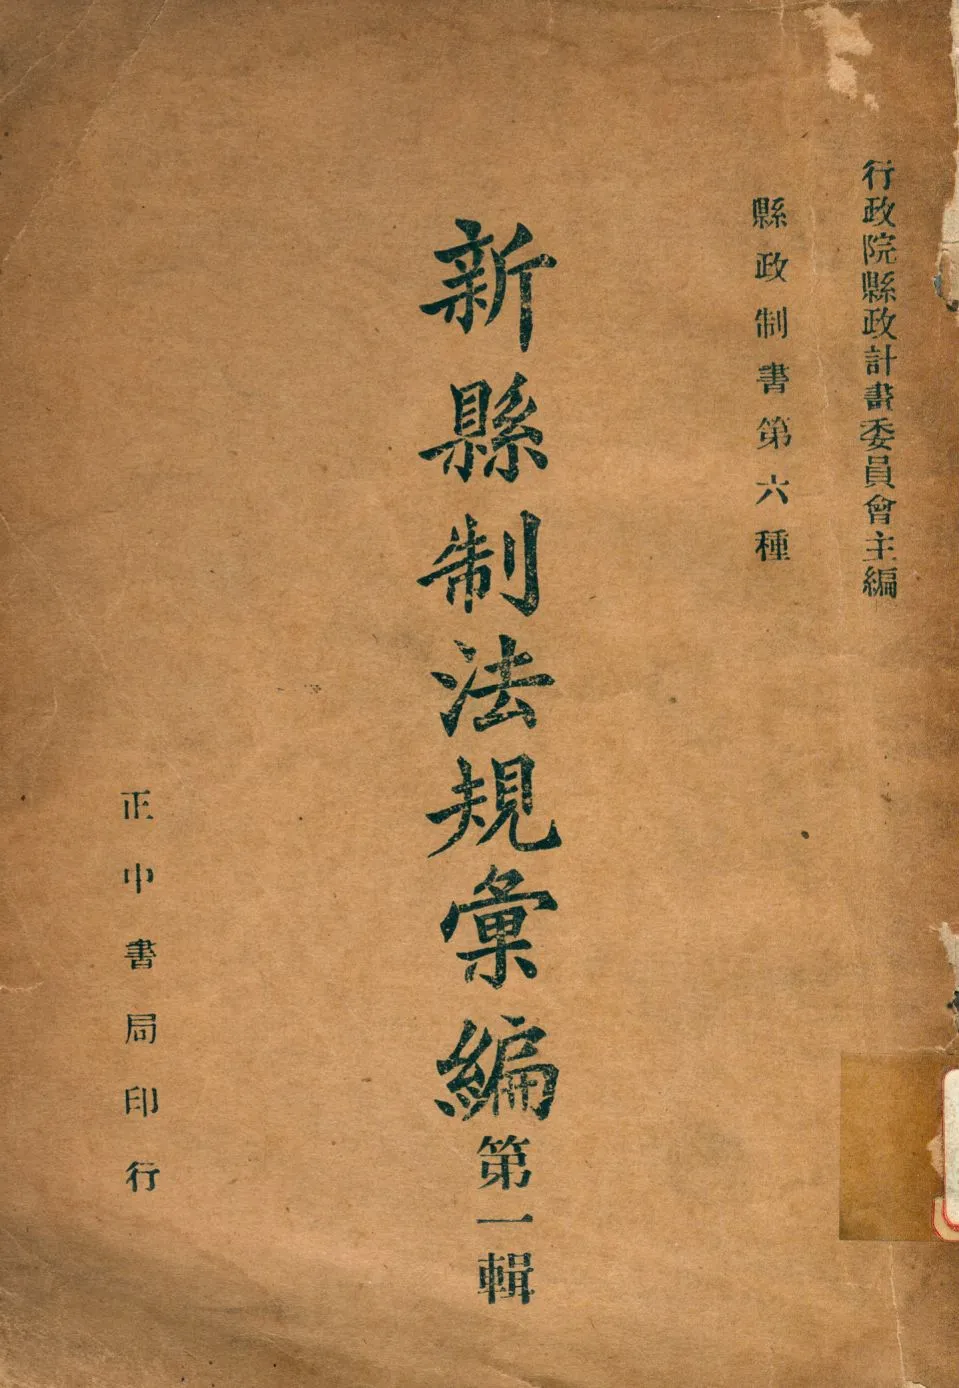 行政院縣政計畫委員會主編
縣政制書第六種
新縣制法規彙編第一輯
正中書局印行